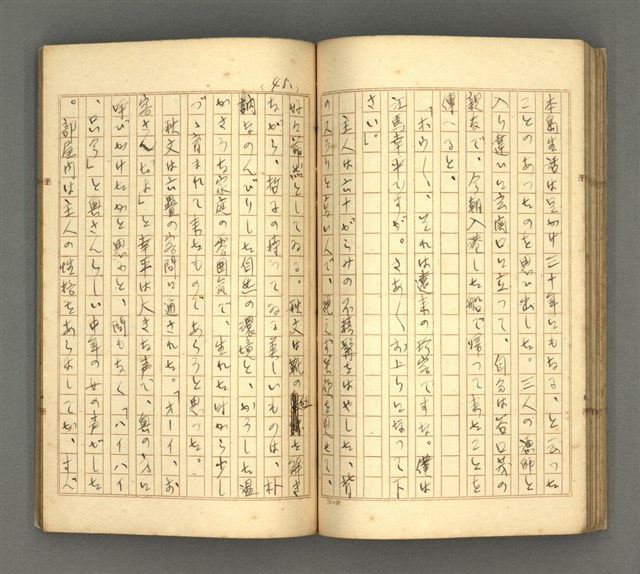 本島生活は足かけ三十年にもなる、と云つた
ことのあつたのを思い出した。三人の漁師と
入り違いに玄関口に立つて、自分は谷口芳の
親友で、今朝入港した船で帰つて来たことを
傳へると、
「ホウ〱、それは遠来の珍客ですな。僕は
江馬幸平ですが。さあ〱お上りになつて下
さい」。
主人は六十がらみの不精髯をはやした、背
のスラりと高い人で、
(45)
好々爺然としてゐる。秋文は靴の紐を解き
ながら、哲子の持つてゐる美しいものは、朴
訥なのんびりした自然の環境と、かうした温
かさうな家庭の雰囲気で、生れた時から少し
づゝ育まれて来たものであらうと思つた。
秋文は六畳の客間に通された。「オーイ、お
客さんだよ」と幸平は大きな声で、奥の方に
呼びかけたかと思ふと、間もなく「ハイハイ
、只今」と奥さんらしい中年の女の声がした
。部屋内は主人の性格をあらはしてか、すべ